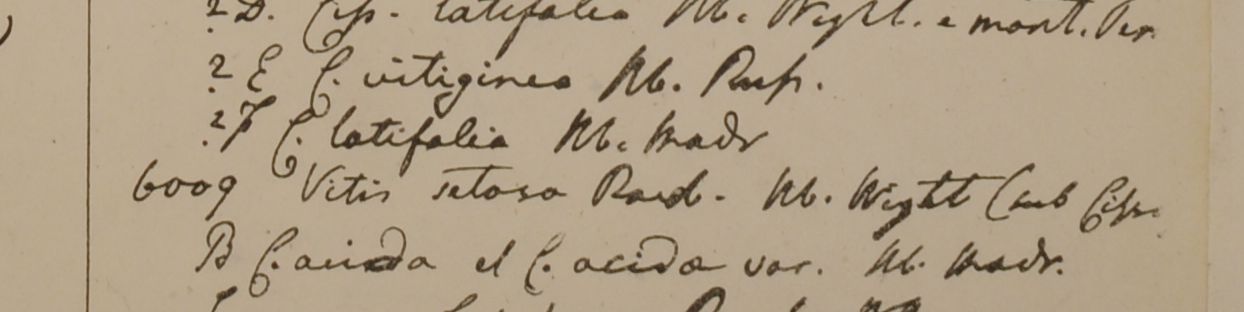 ? D. Ciss. latifolia Hb. Wight. e mont. Per.
? E C. vitiginea Hb. Rusp.
? F C. latifolia Hb. Madr
6009 Vitis setosa Roxb. Hb. Wight (sub Ciss.
B C. acida et C. acida var. Hb. Madr.